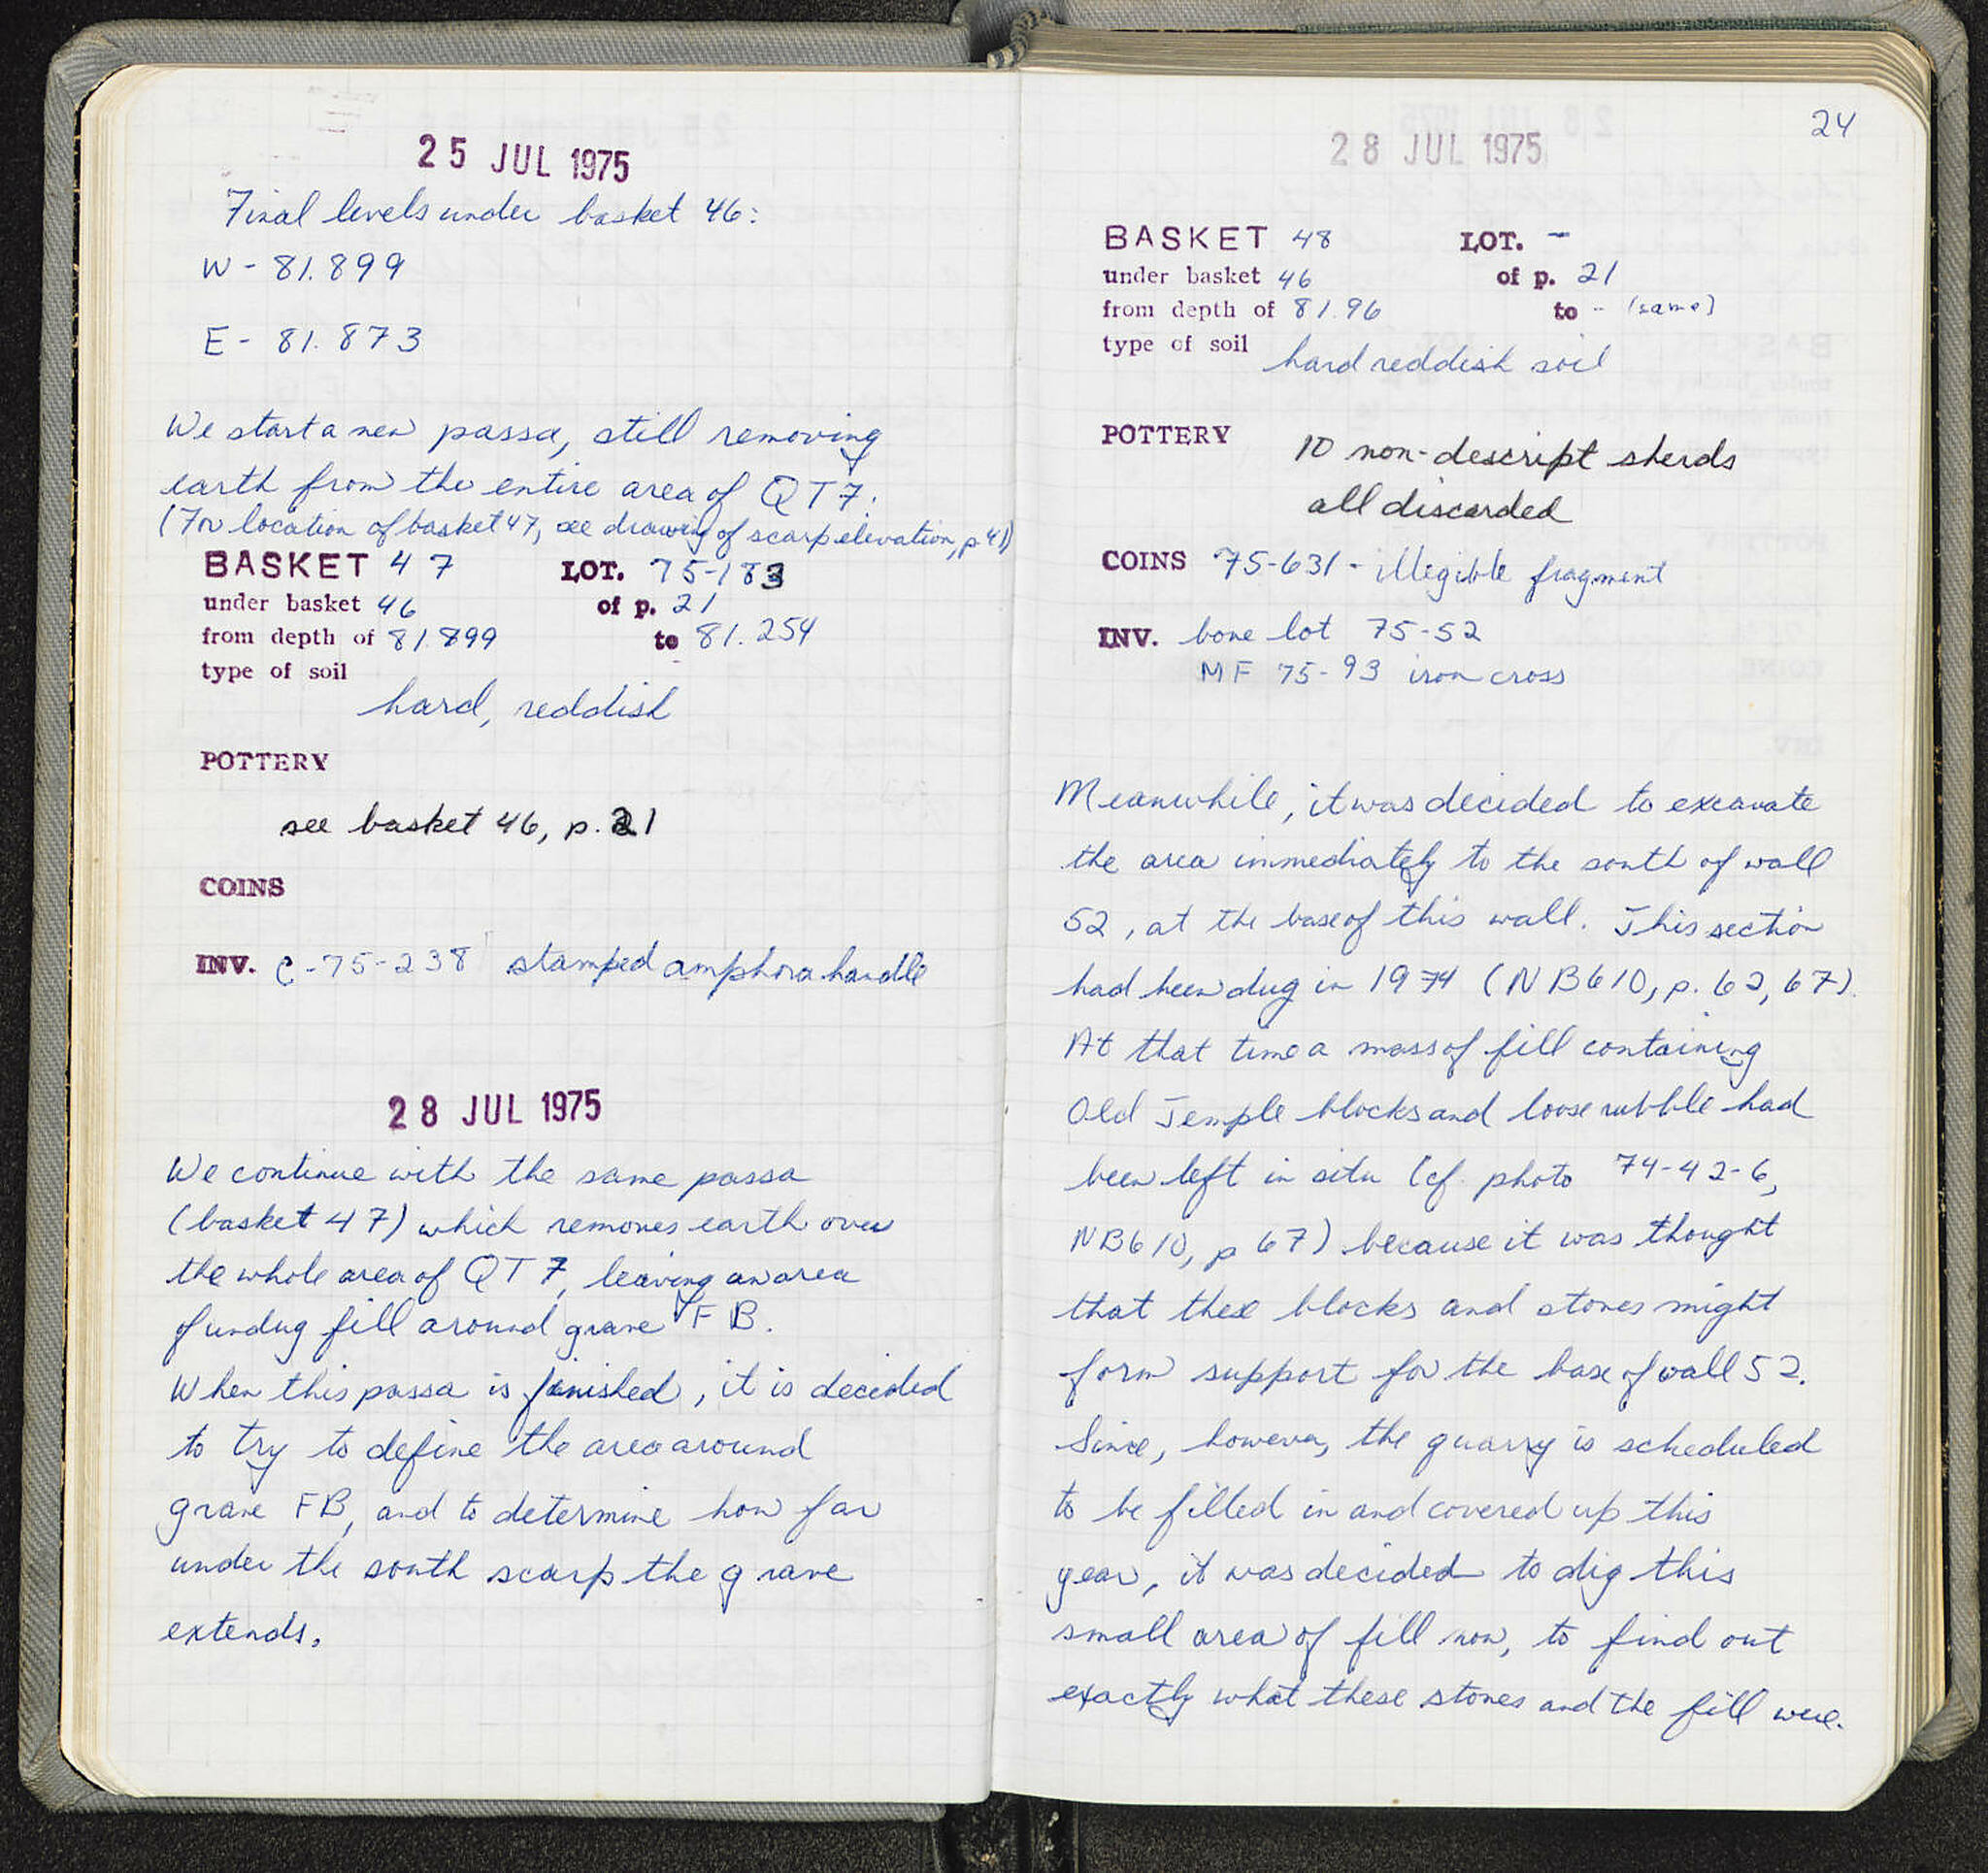 25 JUL 1975
Final levels under basket 46:
W - 81.899
E - 81.873
We start a new passa, still removing
earth from the entire area of QT7.
(For location of basket 47, see drawing of scarp elevation, p 41)
BASKET 47 LOT. 75-183
under basket 46 of p. 21
from depth of 81.899 to 81.254
type of soil
hard, reddish
POTTERY
see basket 46, p. 21
COINS
INV. C-75-238 stamped amphora handle
28 JUL 1975
We continue with the same passa
(basket 47) which removes earth over
the whole area of QT7, leaving an area
of undug fill around grave FB.
When this passa is finished, it is decided
to try to define the area around
grave FB, and to determine how far
under the south scarp the grave
extends.
24
28 JUL 1975
BASKET 48 LOT. -
under basket 46 of p. 21
from depth of 81.96 to - (same)
type of soil hard reddish soil
POTTERY 10 non-descript sherds
all discarded
COINS 75-631 - illegible fragment
INV. bone lot 75-52
MF 75-93 iron cross
Meanwhile, it was decided to excavate
the area immediately to the south of wall
52, at the base of this wall. This section
had been dug in 1974 (NB610, p. 62, 67).
At that time a mass of fill containing
Old Temple blocks and loose rubble had
been left in situ (cf. photo 74-42-6,
NB610, p 67) because it was thought
that these blocks and stones might
form support for the base of wall 52.
Since, however, the quarry is scheduled
to be filled in and covered up this
year, it was decided to dig this
small area of fill now, to find out
exactly what these stones and the fill were.